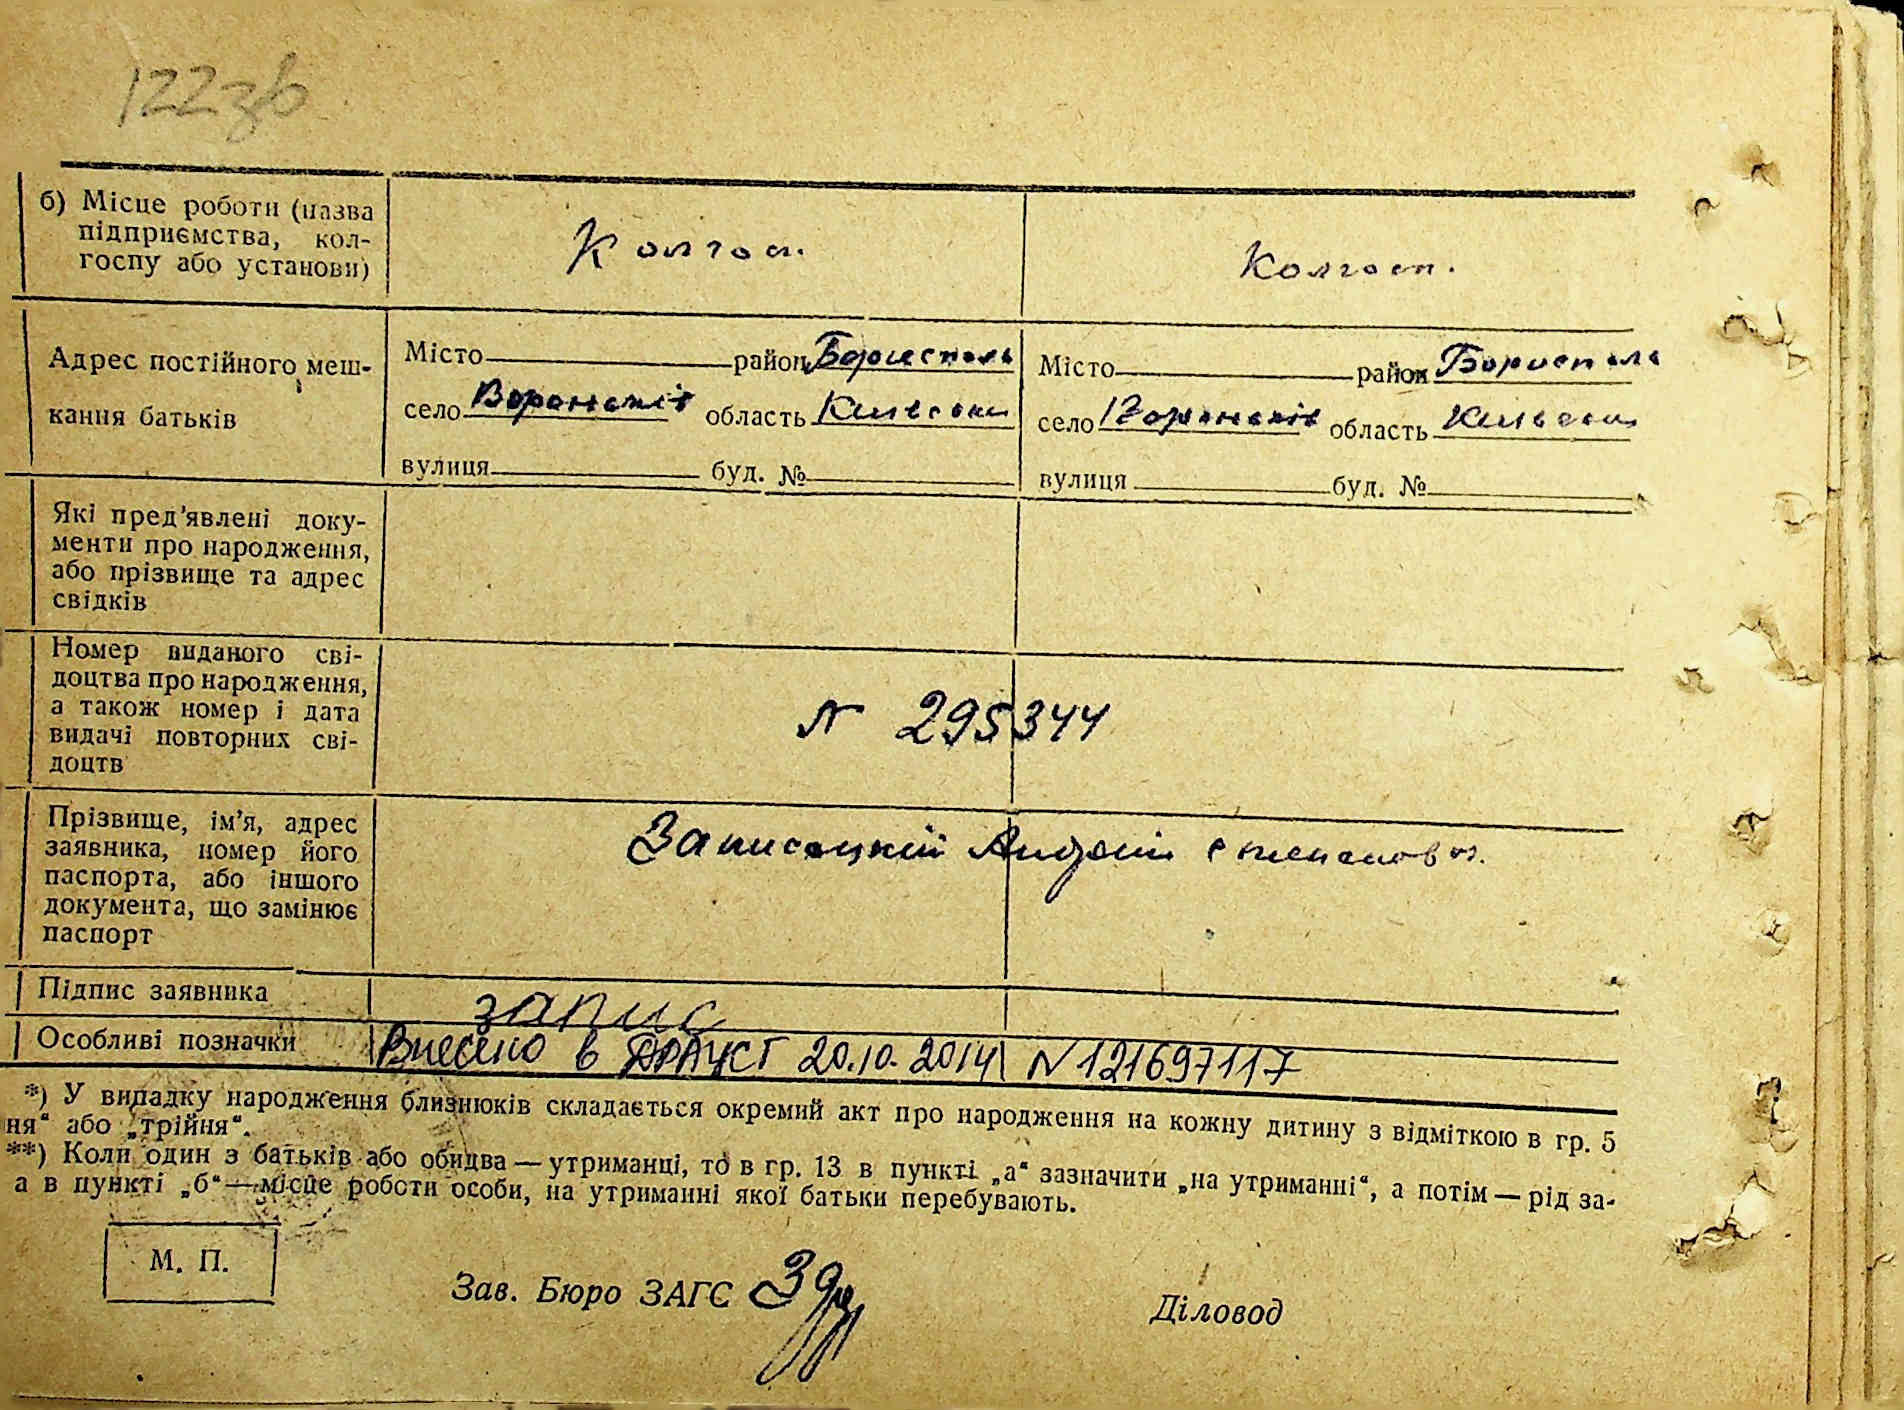 122зв
б) Місце роботи (назва
підприємства, кол-
госпу або установи)
Колгосп.
Колгосп.
Адрес постійного меш-
кання батьків
Місто район Бориспіль
село Вороньків область Київська
вулиця буд. №
Місто район Бориспіль
село Вороньків область Київська
вулиця буд. №
Які пред'явлені доку-
менти про народження,
або прізвище та адрес
свідків
Номер виданого сві-
доцтва про народження,
а також номер і дата
видачі повторних сві-
доцтв
N 295344
Прізвище, ім'я, адрес
заявника, номер його
паспорта, або іншого
документа, що замінює
паспорт
Андрій Степанов
Підпис заявника
запис
Особливі позначки
Внесено в ДРАЦСГ 20.10.2014 N 121697117
*) У випадку народження близнюків складається окремий акт про народження на кожну дитину з відміткою в гр. 5
ня“ або „трійня“.
**) Коли один з батьків або обидва — утриманці, то в гр. 13 в пункті „а“ зазначити „на утриманні“, а потім — рід за-
а в пункті „б“ — місце роботи особи, на утриманні якої батьки перебувають.
М. П.
Зав. Бюро ЗАГС
Діловод